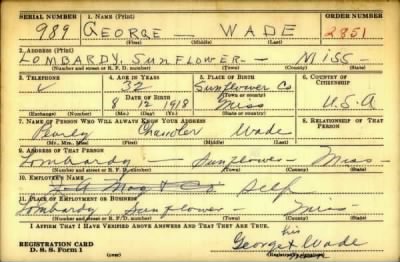 SERIAL NUMBER 1. NAME (Print) ORDER NUMBER
989 GEORGE — WADE 2851
(First) (Middle) (Last)
2. ADDRESS (Print)
LOMBARDY. SUNFLOWER — MISS —
(Number and street or R. F. D. number) (Town) (County) (State)
3. TELEPHONE 4. AGE IN YEARS 5. PLACE OF BIRTH 6. COUNTRY OF CITIZENSHIP
32 Sunflower Co
DATE OF BIRTH (Town or county)
8 12 1918 Miss U.S.A
(Exchange) (Number) (Mo.) (Day) (Yr.) (State or country)
7. NAME OF PERSON WHO WILL ALWAYS KNOW YOUR ADDRESS 8. RELATIONSHIP OF THAT PERSON
Pearly Chandler Wade
(Mr., Mrs., Miss) (First) (Middle) (Last)
9. ADDRESS OF THAT PERSON
Lombardy — Sunflower — Miss —
(Number and street or R. F. D. number) (Town) (County) (State)
10. EMPLOYER'S NAME
Self
11. PLACE OF EMPLOYMENT OR BUSINESS
Lombardy Sunflower — Miss —
(Number and street or R. F. D. number) (Town) (County) (State)
I AFFIRM THAT I HAVE VERIFIED ABOVE ANSWERS AND THAT THEY ARE TRUE.
his
REGISTRATION CARD George x Wade
D. S. S. Form 1